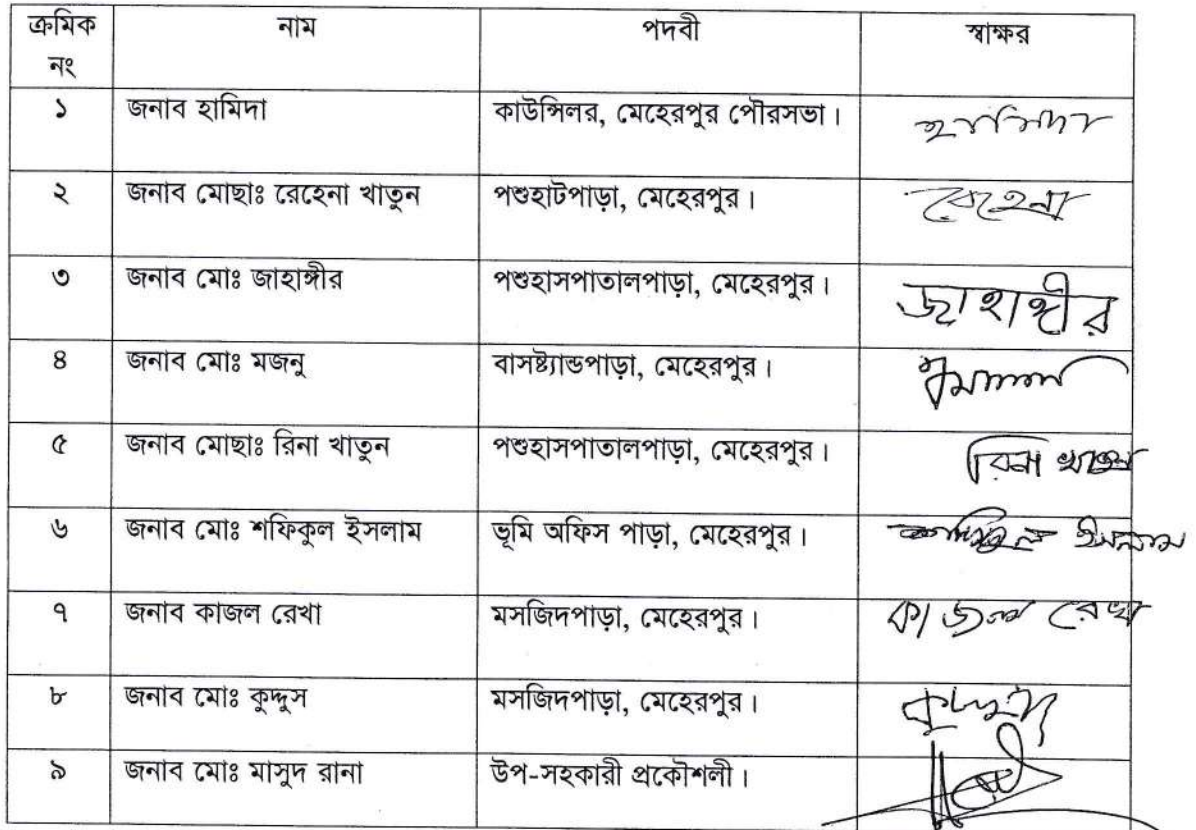 ক্রমিক নং	নাম	পদবী	স্বাক্ষর
১	জনাব হামিদা	কাউন্সিলর, মেহেরপুর পৌরসভা।	হামিদা
২	জনাব মোছাঃ রেহেনা খাতুন	পশুহাটপাড়া, মেহেরপুর।	রেহেনা
৩	জনাব মোঃ জাহাঙ্গীর	পশুহাসপাতালপাড়া, মেহেরপুর।	জাহাঙ্গীর
৪	জনাব মোঃ মজনু	বাসষ্ট্যান্ডপাড়া, মেহেরপুর।
৫	জনাব মোছাঃ রিনা খাতুন	পশুহাসপাতালপাড়া, মেহেরপুর।	রিনা খাতুন
৬	জনাব মোঃ শফিকুল ইসলাম	ভূমি অফিস পাড়া, মেহেরপুর।	শফিকুল ইসলাম
৭	জনাব কাজল রেখা	মসজিদপাড়া, মেহেরপুর।	কাজল রেখা
৮	জনাব মোঃ কুদ্দুস	মসজিদপাড়া, মেহেরপুর।	কুদ্দুস
৯	জনাব মোঃ মাসুদ রানা	উপ-সহকারী প্রকৌশলী।